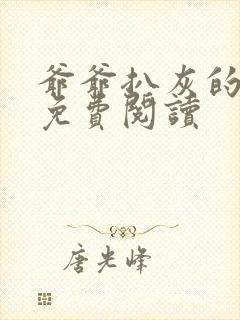 爺爺扒灰的
免費閱讀
唐光峰